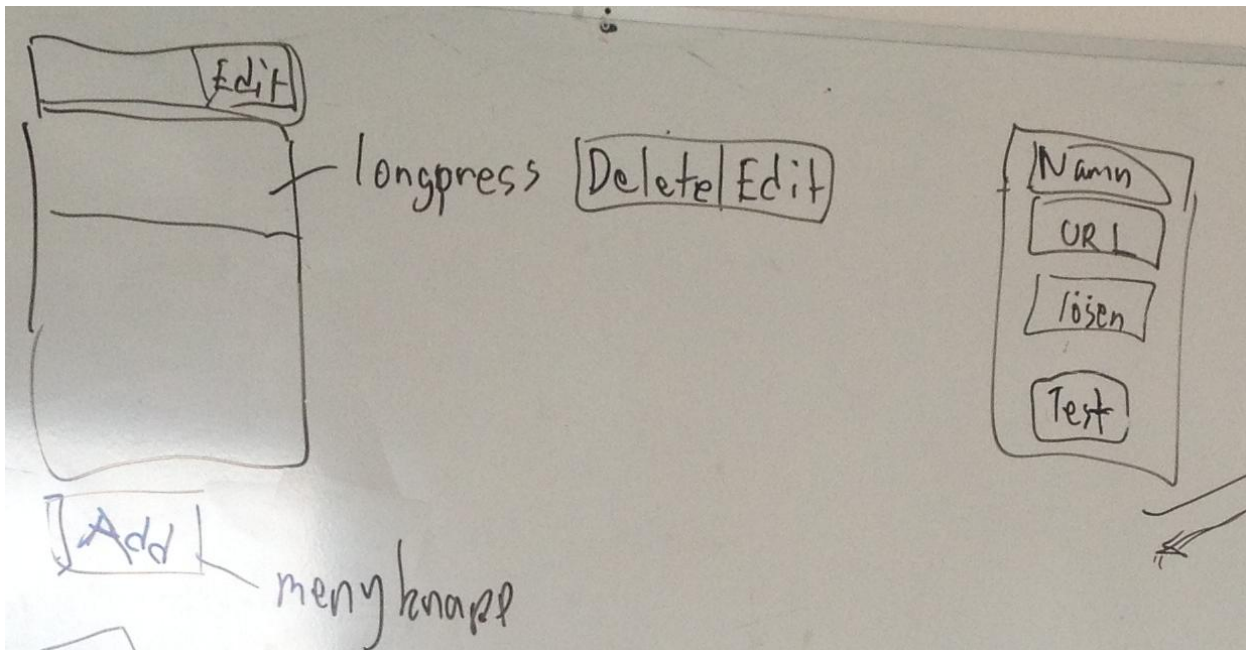 Edit
longpress
Delete Edit
Namn
URL
lösen
Test
Add
menyknapp